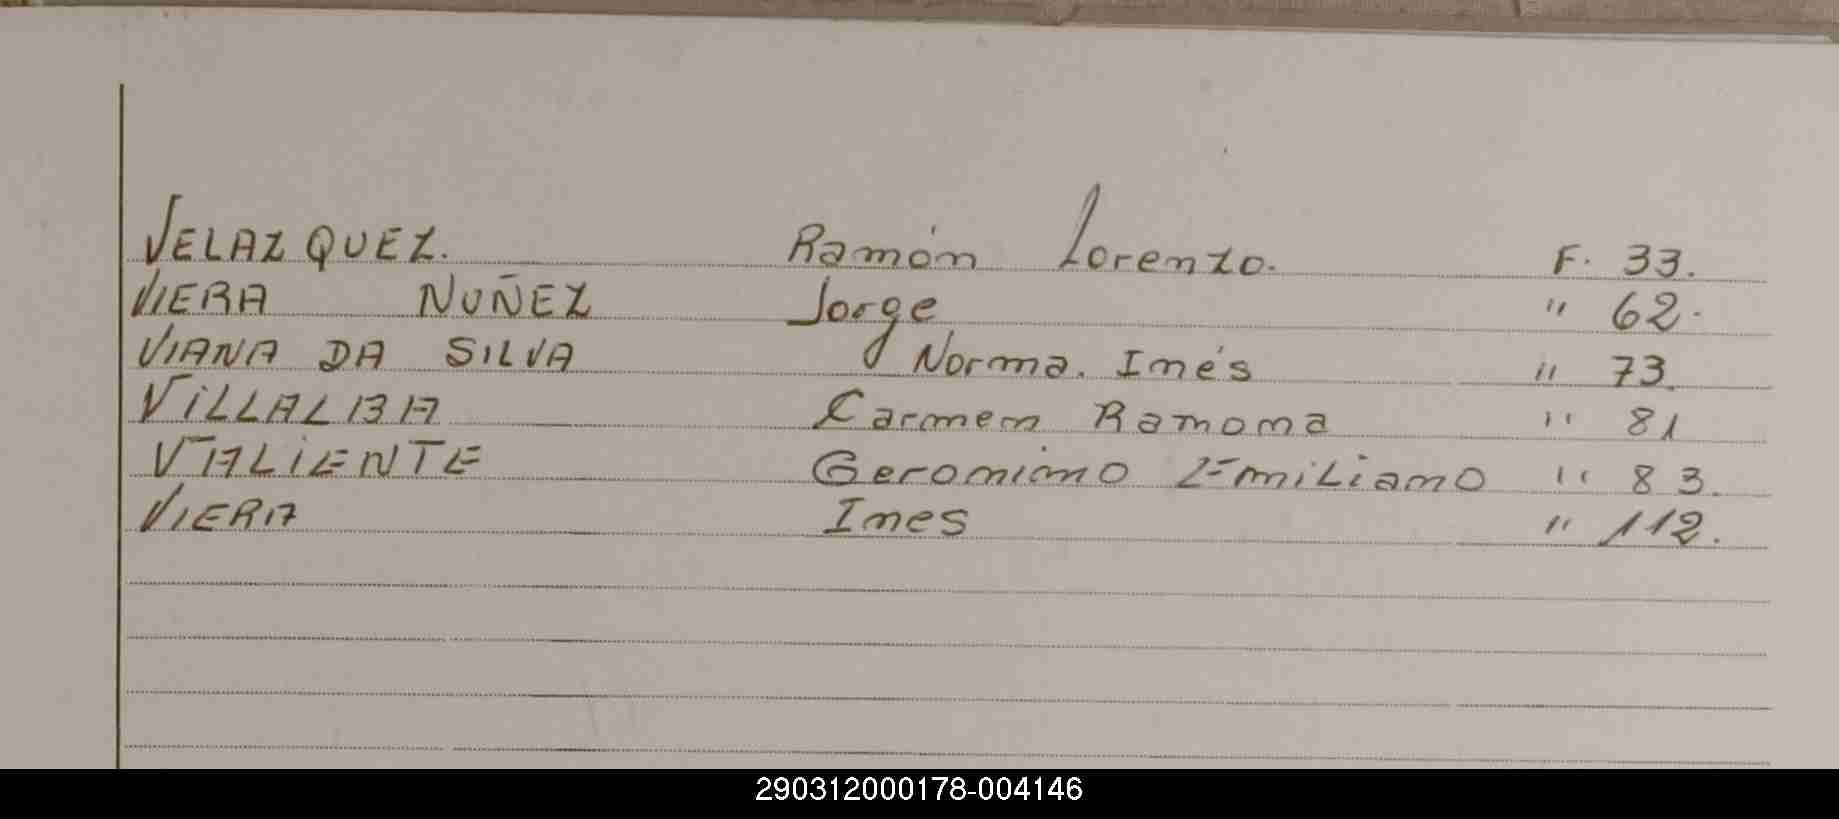 VELAZQUEZ. Ramón Lorenzo. F. 33.
VIERA NUÑEZ Jorge " 62.
VIANA DA SILVA Norma. Inés " 73.
VILLALBA Carmen Ramona " 81
VALIENTE Geronimo Emiliano " 83.
VIERA Ines " 112.
290312000178-004146